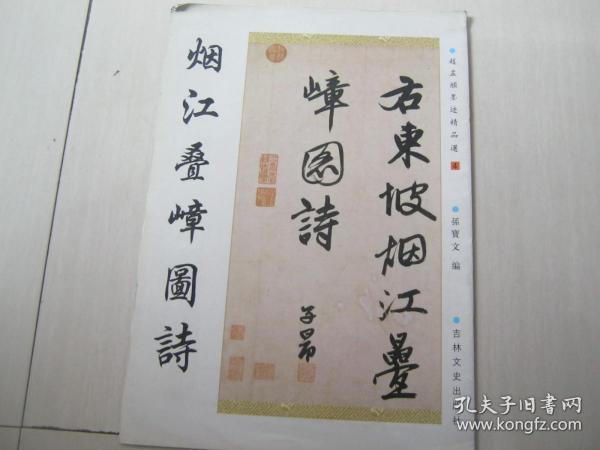 趙孟頫墨迹精品選 4
孫寶文 编
吉林文史出版社
右東坡烟江疊
嶂図詩
子昂
烟江叠嶂圖詩
孔夫子旧書网
www.kongfz.com